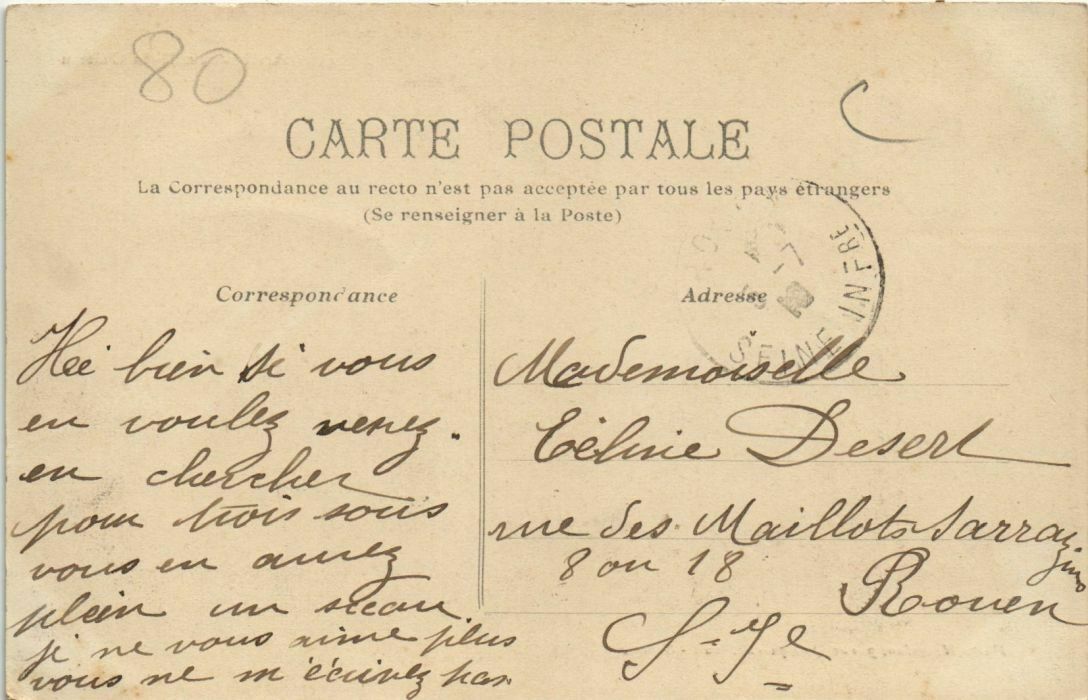 80
CARTE POSTALE
La Correspondance au recto n'est pas acceptée par tous les pays étrangers
(Se renseigner à la Poste)
SEINE INFRE
Correspondance
Hé bien si vous
en voulez venez
en chercher
pour trois sous
vous en aurez
plein un sceau
je ne vous aime plus
vous ne m'écrivez pas
Adresse
Mademoiselle
Céline Desert
rue des Maillots Sarrazins
8 ou 18
Rouen
S-Ie